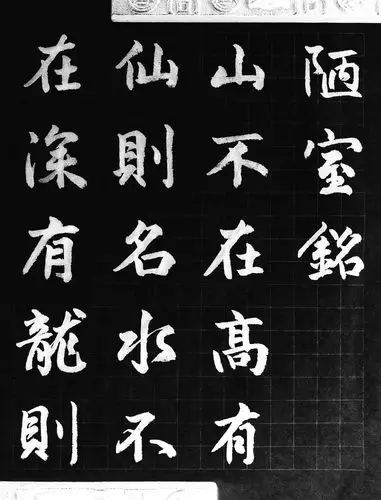 陋室銘
山不在高有
仙則名水不
在深有龍則